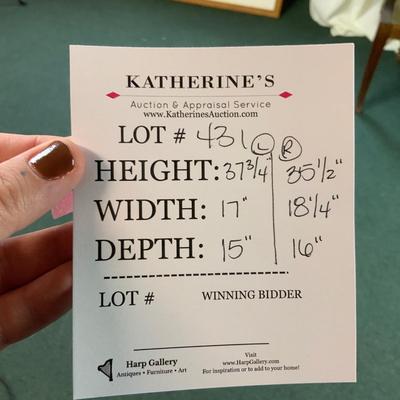 KATHERINE'S
Auction & Appraisal Service
www.KatherinesAuction.com
LOT # 431 L R
HEIGHT: 37 3/4" 35 1/2"
WIDTH: 17" 18 1/4"
DEPTH: 15" 16"
LOT # WINNING BIDDER
Harp Gallery
Antiques • Furniture • Art
Visit
www.HarpGallery.com
For inspiration or to add to your home!